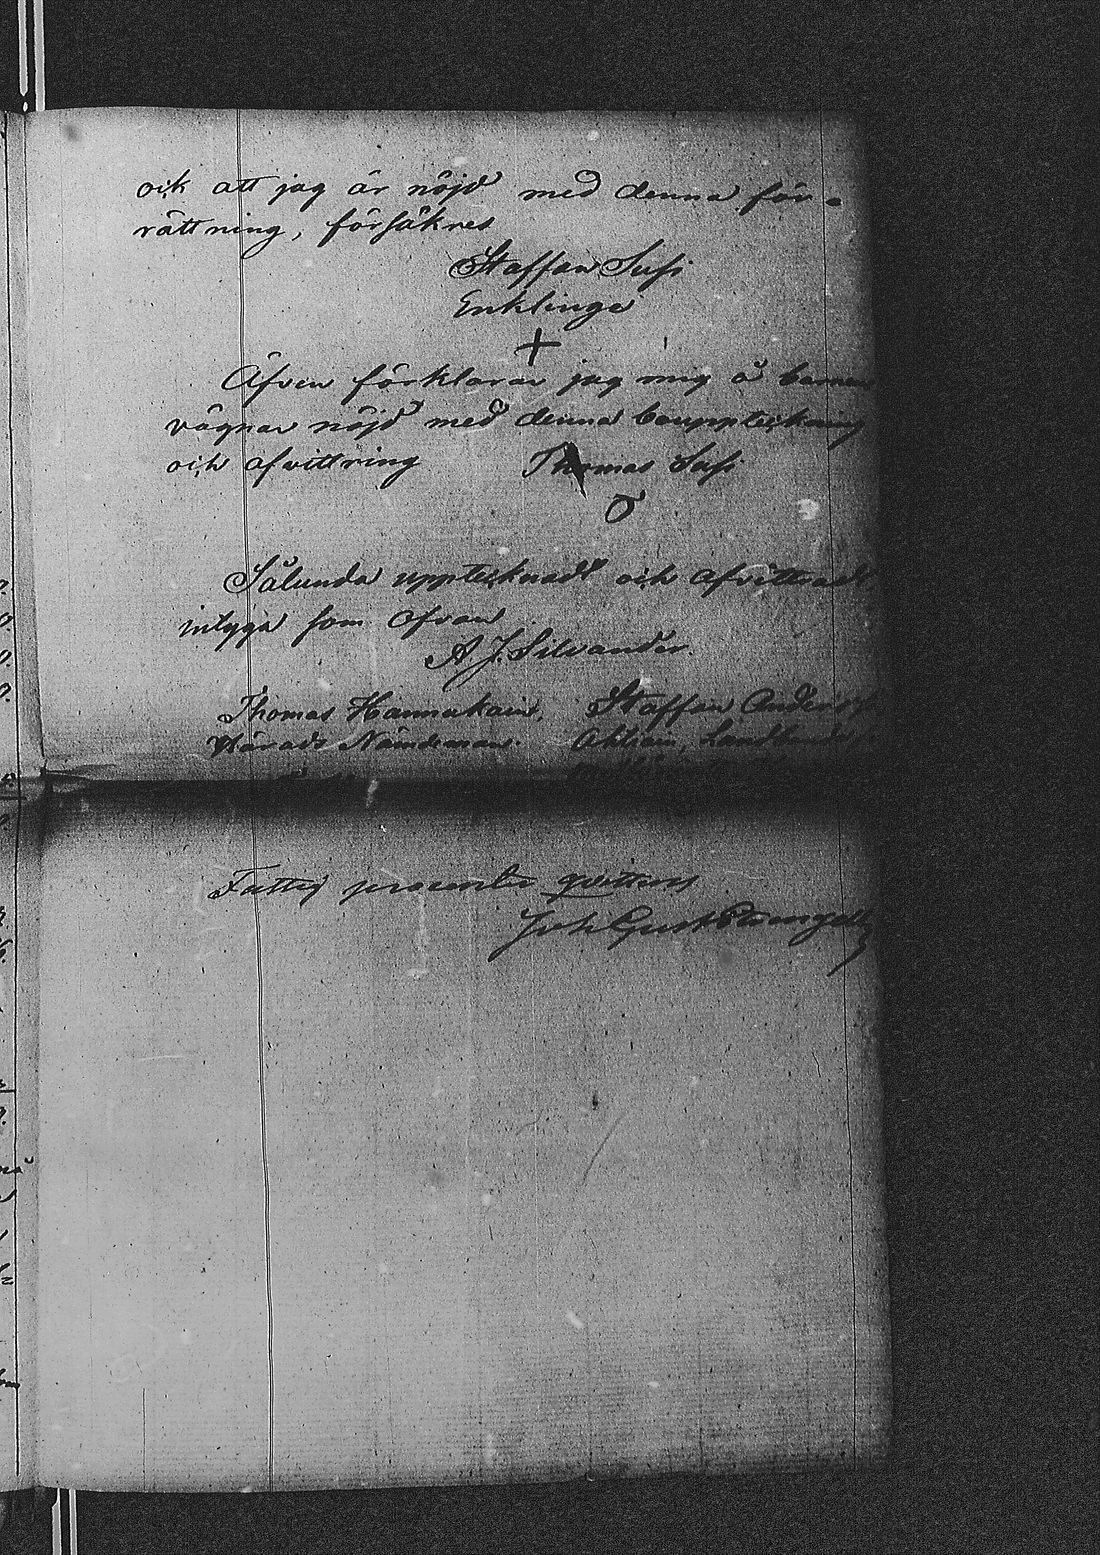 och att jag är nöjd med denna för-
rättning, försäkres
Staffan Susi
Enklinge
Äfven förklarar jag mig å barnens
vägnar nöjd med denna bouppteckning
och afvittring Thomas Susi
Sålunda upptecknadt och afvittradt
intyga som ofvan
A J. Silvander
Thomas Hannukain. Staffan Anderss
Härads Nämdeman. Ahtiain, Landbonde
Fattig procenten qvitteras
Joh Gust